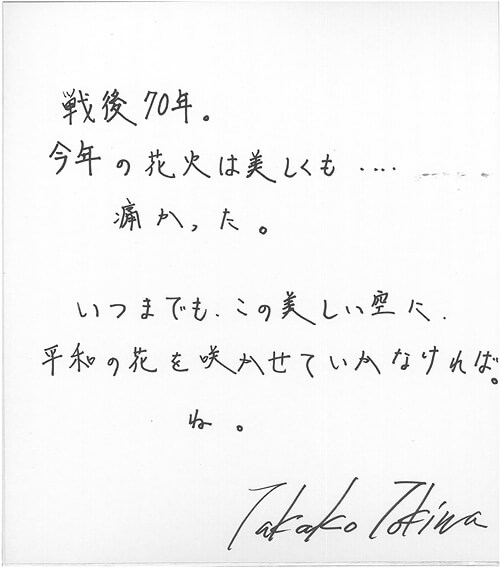 戦後70年。
今年の花火は美しくも....
痛かった。
いつまでも、この美しい空に、
平和の花を咲かせていかなければ。
ね。
Takako Tokiwa